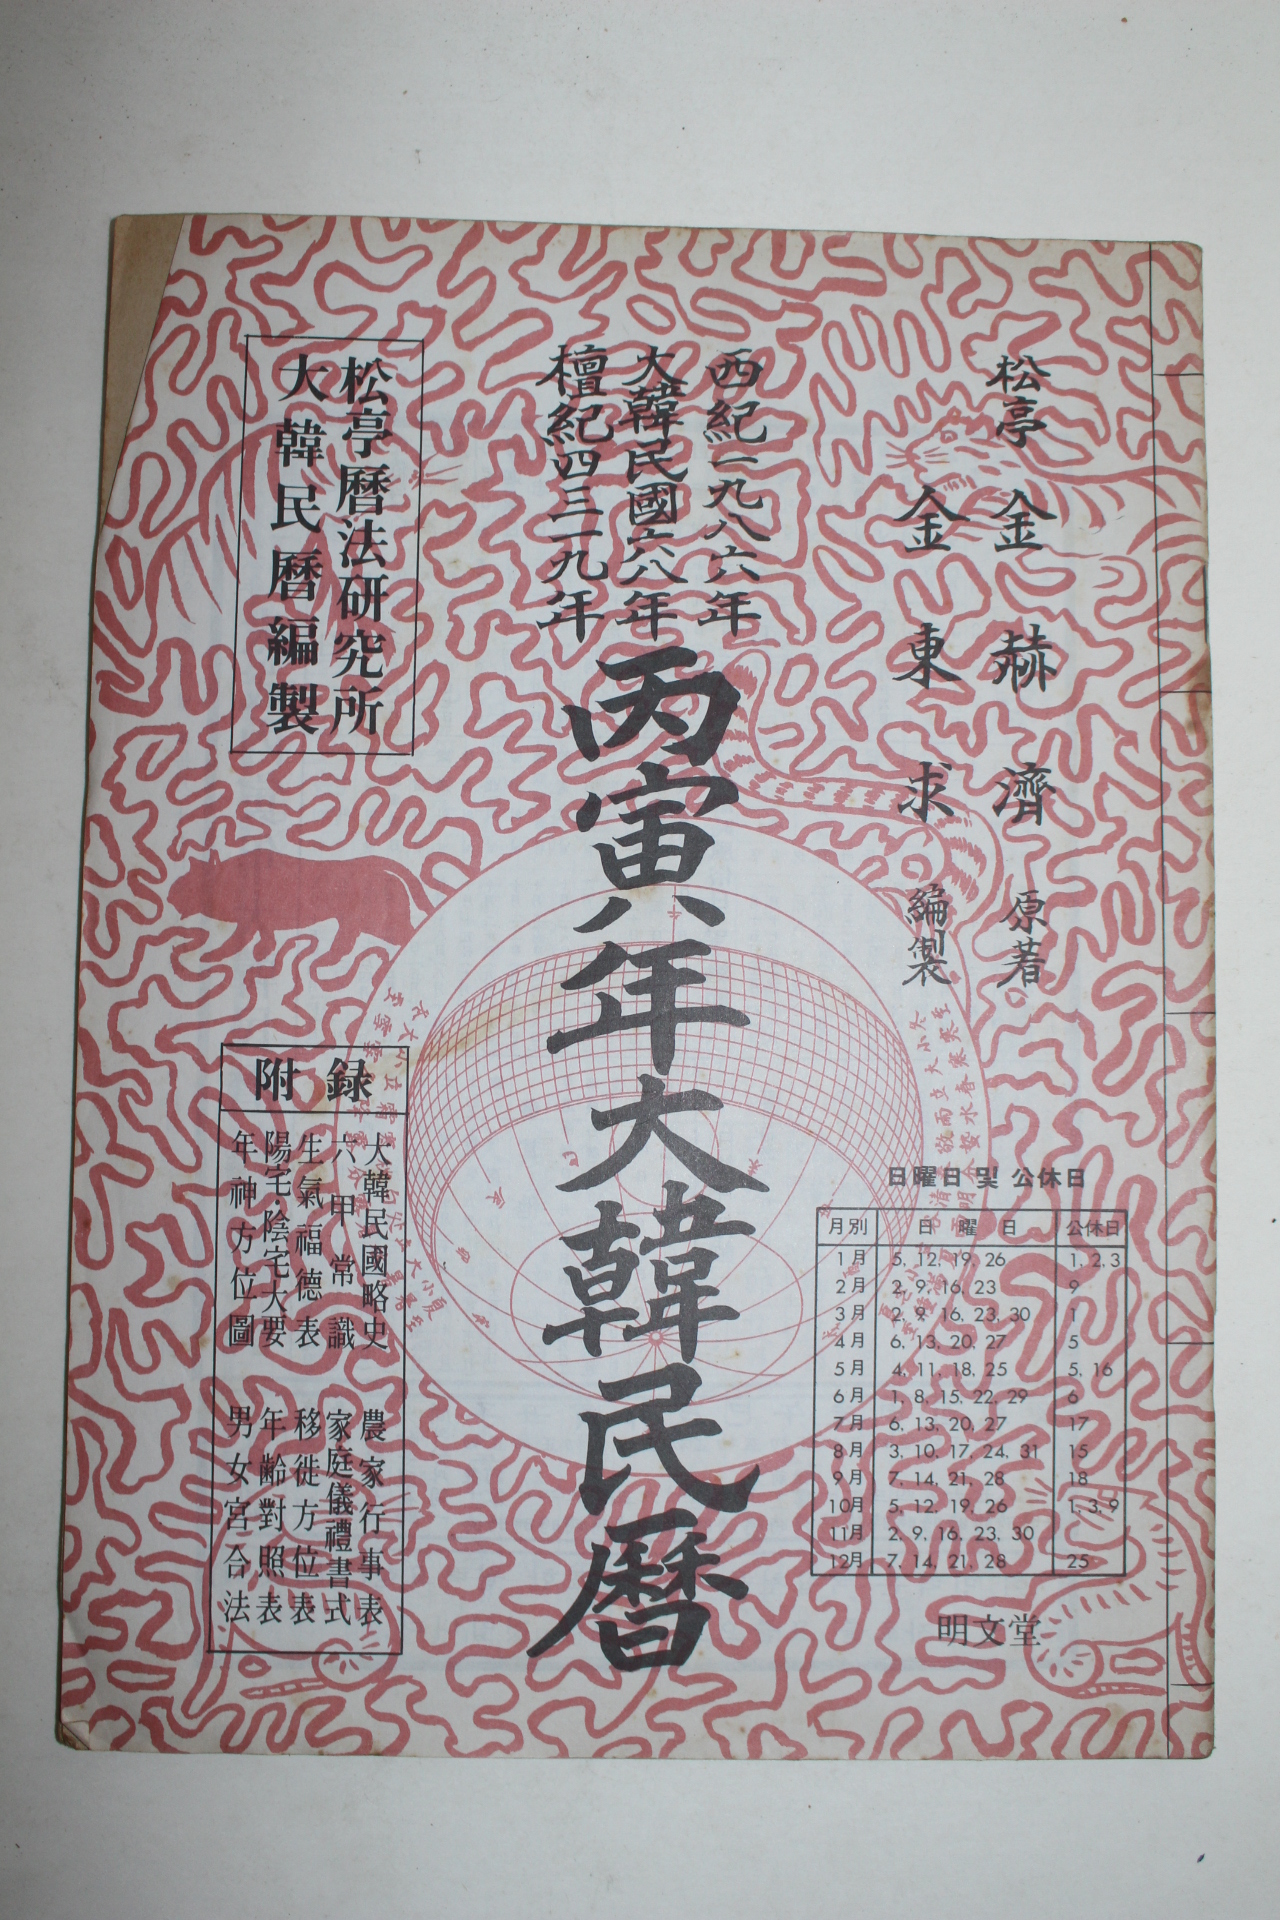 松亭 金赫濟 原著
金東求 編製
西紀一九八六年
大韓民國六八年
檀紀四三一九年
丙寅年大韓民曆
松亭曆法研究所
大韓民曆編製
附録
大韓民國略史 農家行事表
六甲常識 家庭儀禮書式
生氣福德表 移徙方位表
陽宅·陰宅大要 年齡對照表
年神方位圖 男女宮合法
日曜日 및 公休日
月別 日曜日 公休日
1月 5, 12, 19, 26 1, 2, 3
2月 2, 9, 16, 23 9
3月 2, 9, 16, 23, 30 1
4月 6, 13, 20, 27 5
5月 4, 11, 18, 25 5, 16
6月 1, 8, 15, 22, 29 6
7月 6, 13, 20, 27 17
8月 3, 10, 17, 24, 31 15
9月 7, 14, 21, 28 18
10月 5, 12, 19, 26 1, 3, 9
11月 2, 9, 16, 23, 30
12月 7, 14, 21, 28 25
明文堂